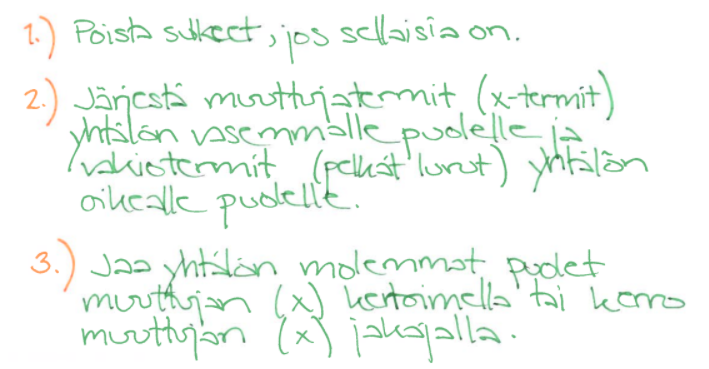 1.) Poista sulkeet, jos sellaisia on.
2.) Järjestä muuttujatermit (x-termit)
yhtälön vasemmalle puolelle ja
vakiotermit (pelkät luvut) yhtälön
oikealle puolelle.
3.) Jaa yhtälön molemmat puolet
muuttujan (x) kertoimella tai kerro
muuttujan (x) jakajalla.